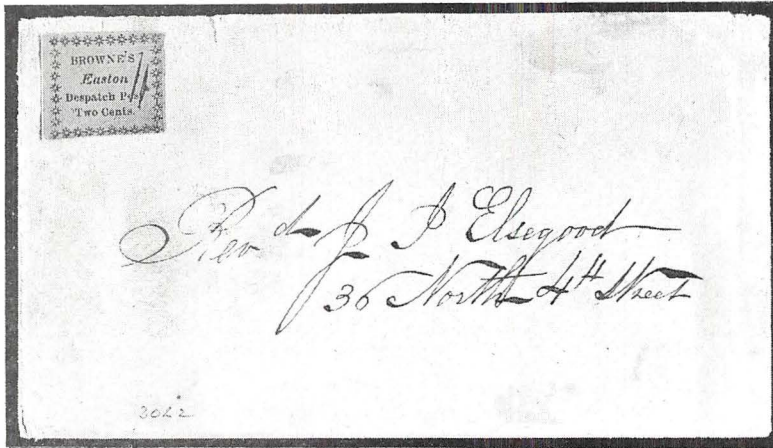 BROWNE'S
Easton
Despatch Post
Two Cents.
Revd J I Elsegood
36 North 4th Street
3022